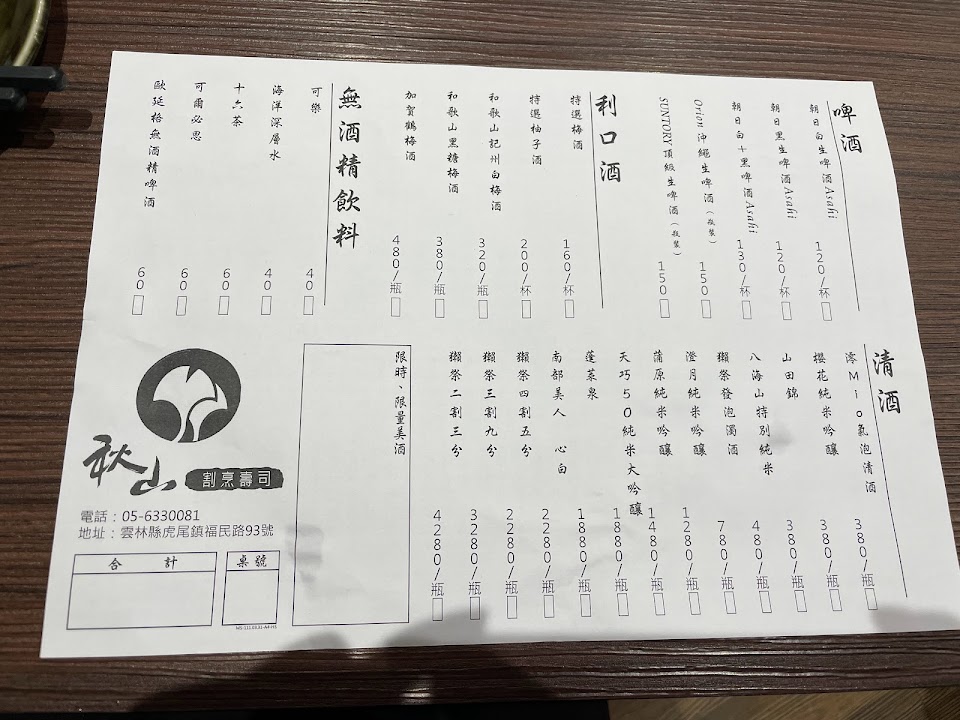 啤酒
朝日白生啤酒Asahi 120/杯
朝日黑生啤酒Asahi 120/杯
朝日白+黑啤酒Asahi 130/杯
Orion沖繩生啤酒(瓶裝) 150
SUNTORY頂級生啤酒(瓶裝) 150
利口酒
特選梅酒 160/杯
特選柚子酒 200/杯
和歌山記州白梅酒 320/瓶
和歌山黑糖梅酒 380/瓶
加賀鶴梅酒 480/瓶
無酒精飲料
可樂 40
海洋深層水 40
十六茶 60
可爾必思 60
歐廷格無酒精啤酒 60
清酒
澪Mio氣泡清酒 380/瓶
櫻花純米吟釀 380/瓶
山田錦 380/瓶
八海山特別純米 480/瓶
獺祭發泡濁酒 780/瓶
澄月純米吟釀 1280/瓶
蒲原純米吟釀 1480/瓶
天巧50純米大吟釀 1880/瓶
蓬萊泉 1880/瓶
南部美人 心白 2280/瓶
獺祭四割五分 2280/瓶
獺祭三割九分 3280/瓶
獺祭二割三分 4280/瓶
限時、限量美酒
秋山
割烹壽司
電話：05-6330081
地址：雲林縣虎尾鎮福民路93號
合計
桌號